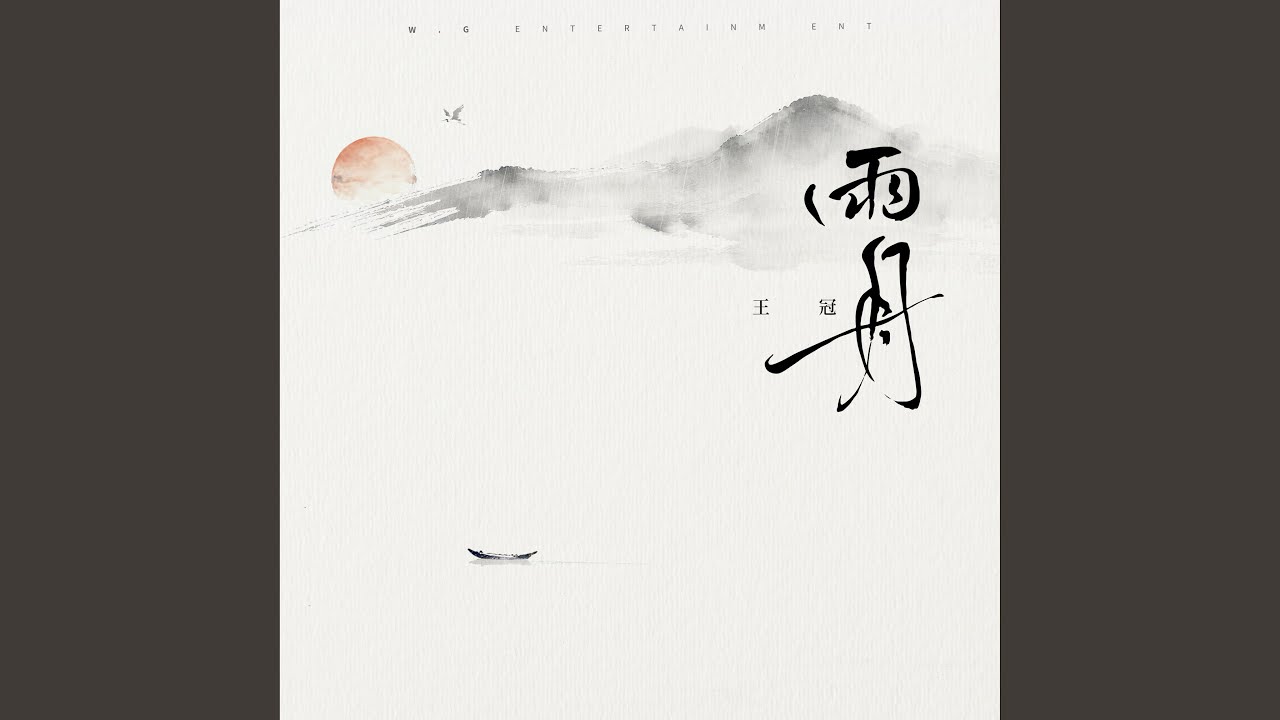 W.G ENTERTAINMENT
雨舟
王冠